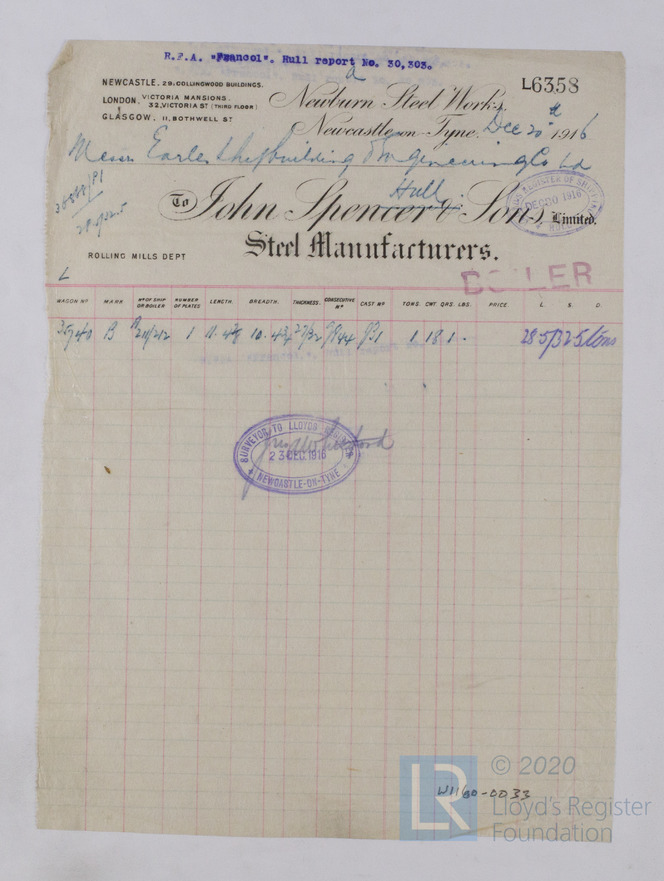 R.F.A. "Francol". Hull report No. 30,303.
L6358
NEWCASTLE. 29. COLLINGWOOD BUILDINGS.
LONDON. VICTORIA MANSIONS.
32, VICTORIA ST (THIRD FLOOR)
GLASGOW. 11, BOTHWELL ST
Newburn Steel Works,
Newcastle-on-Tyne, Dec 20th 1916
Messrs Earles Shipbuilding & Engineering Co Ld
Hull
To John Spencer & Sons, Limited.
Steel Manufacturers.
ROLLING MILLS DEPT
BOILER
L
WAGON No MARK No OF SHIP OR BOILER NUMBER OF PLATES LENGTH. BREADTH. THICKNESS. CONSECUTIVE No CAST No TONS. CWT QRS. LBS. PRICE. L. S. D.
35740 B 211/212 1 1 18 1 - 28.5/32.5 tons
SURVEYOR TO LLOYDS REGISTER
23 DEC. 1916
NEWCASTLE-ON-TYNE
W1160-0033
LR
© 2020
Lloyd's Register
Foundation